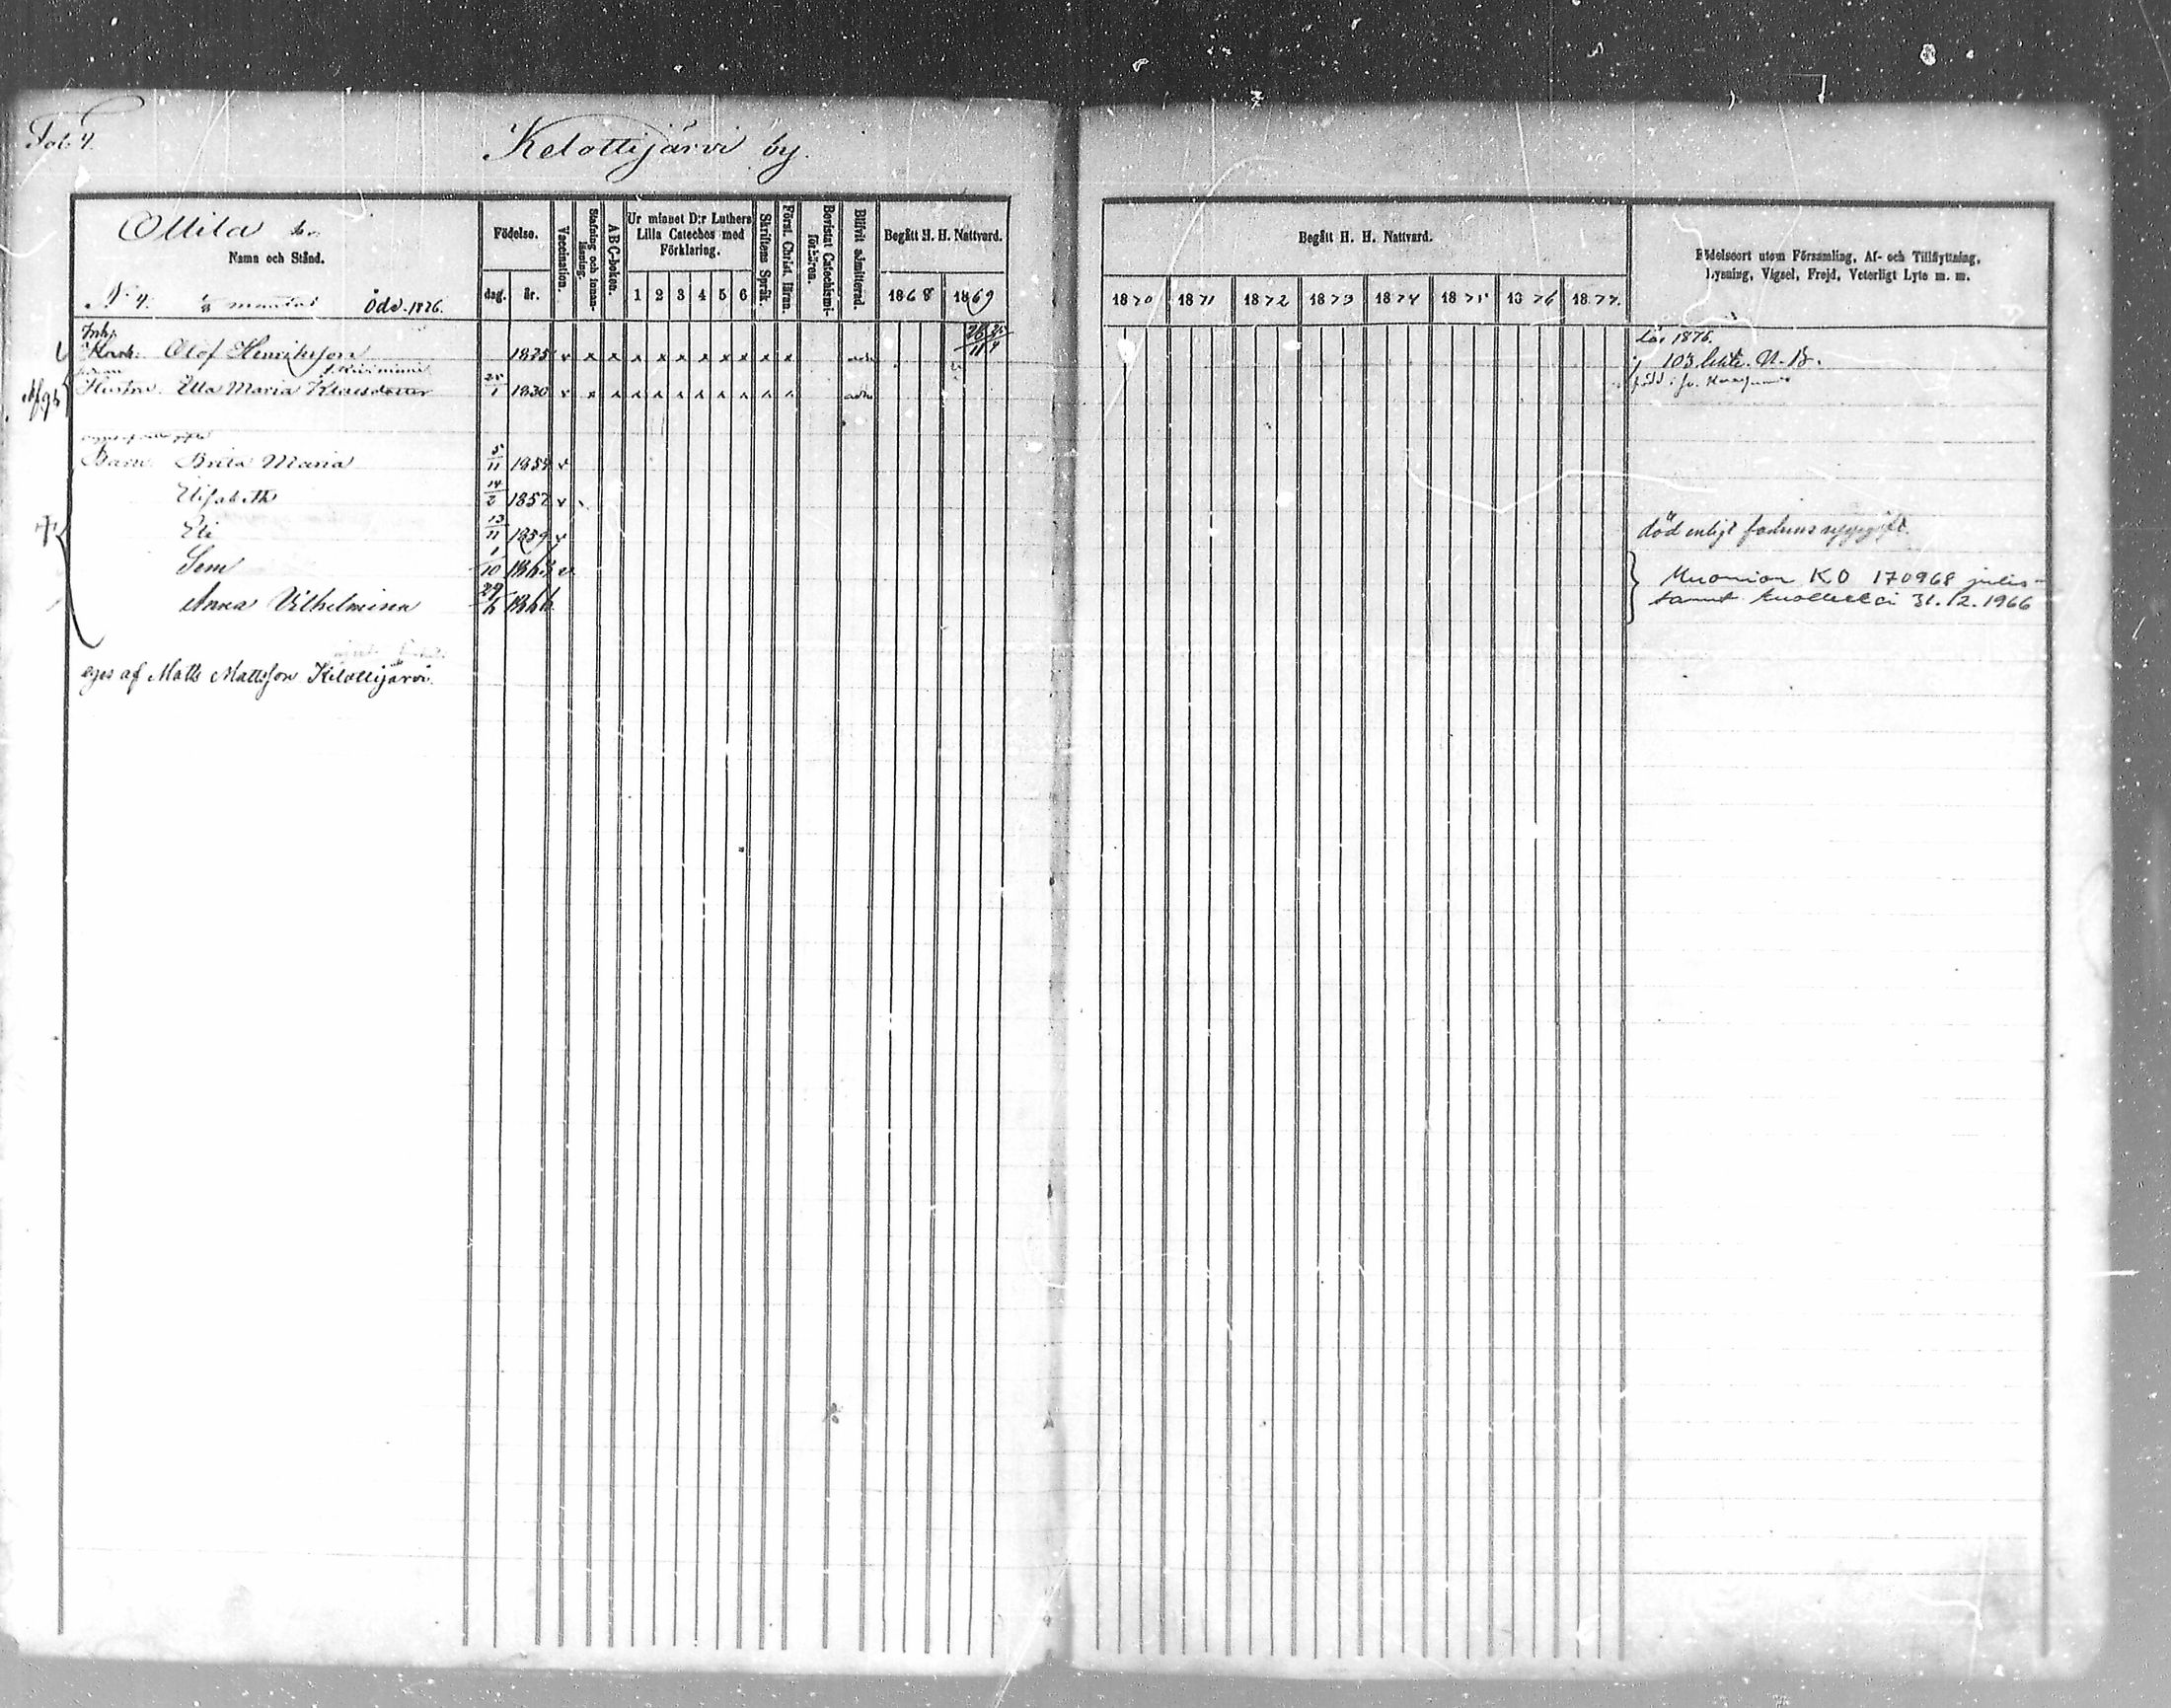 Fol. 4.
Kelottijärvi by.
Ollila
Namn och Stånd.
N:o 4. 1/8 mantal Öde. 1876.
Födelse.
dag. år.
Vaccination.
Stafning och innanläsning.
ABC-boken.
Ur minnet D:r Luthers
Lilla Cateches med
Förklaring.
1 2 3 4 5 6
Skriftens Språk.
Först. Christ. läran.
Bevistat Catechismi-
förhören.
Blifvit admitterad.
Begått H. H. Nattvard.
1868 1869
Begått H. H. Nattvard.
1870 1871 1872 1873 1874 1875 1876 1877.
Födelseort utom Församling, Af- och Tillflyttning,
Lysning, Vigsel, Frejd, Veterligt Lyte m. m.
Inh.
Olof Henriksson 1835 v x x x x x x x x x x adm
1876.
103. N. B.
Hustru Ella Maria Klaesdotter 25/1 1830 v x x x x x x x x x x adm
född i
Barn. Brita Maria 5/11 1854 v
Elisabeth 14/2 1857 v
Eli 13/11 1859 v
död enligt fadrens uppgift.
Sem 1/10 1863 v
Anna Vilhelmina 29/6 1866
Muonion KO 170968 julis-
tanut kuolleeksi 31.12.1966
eges af Matts Mattsson Kelottijärvi.